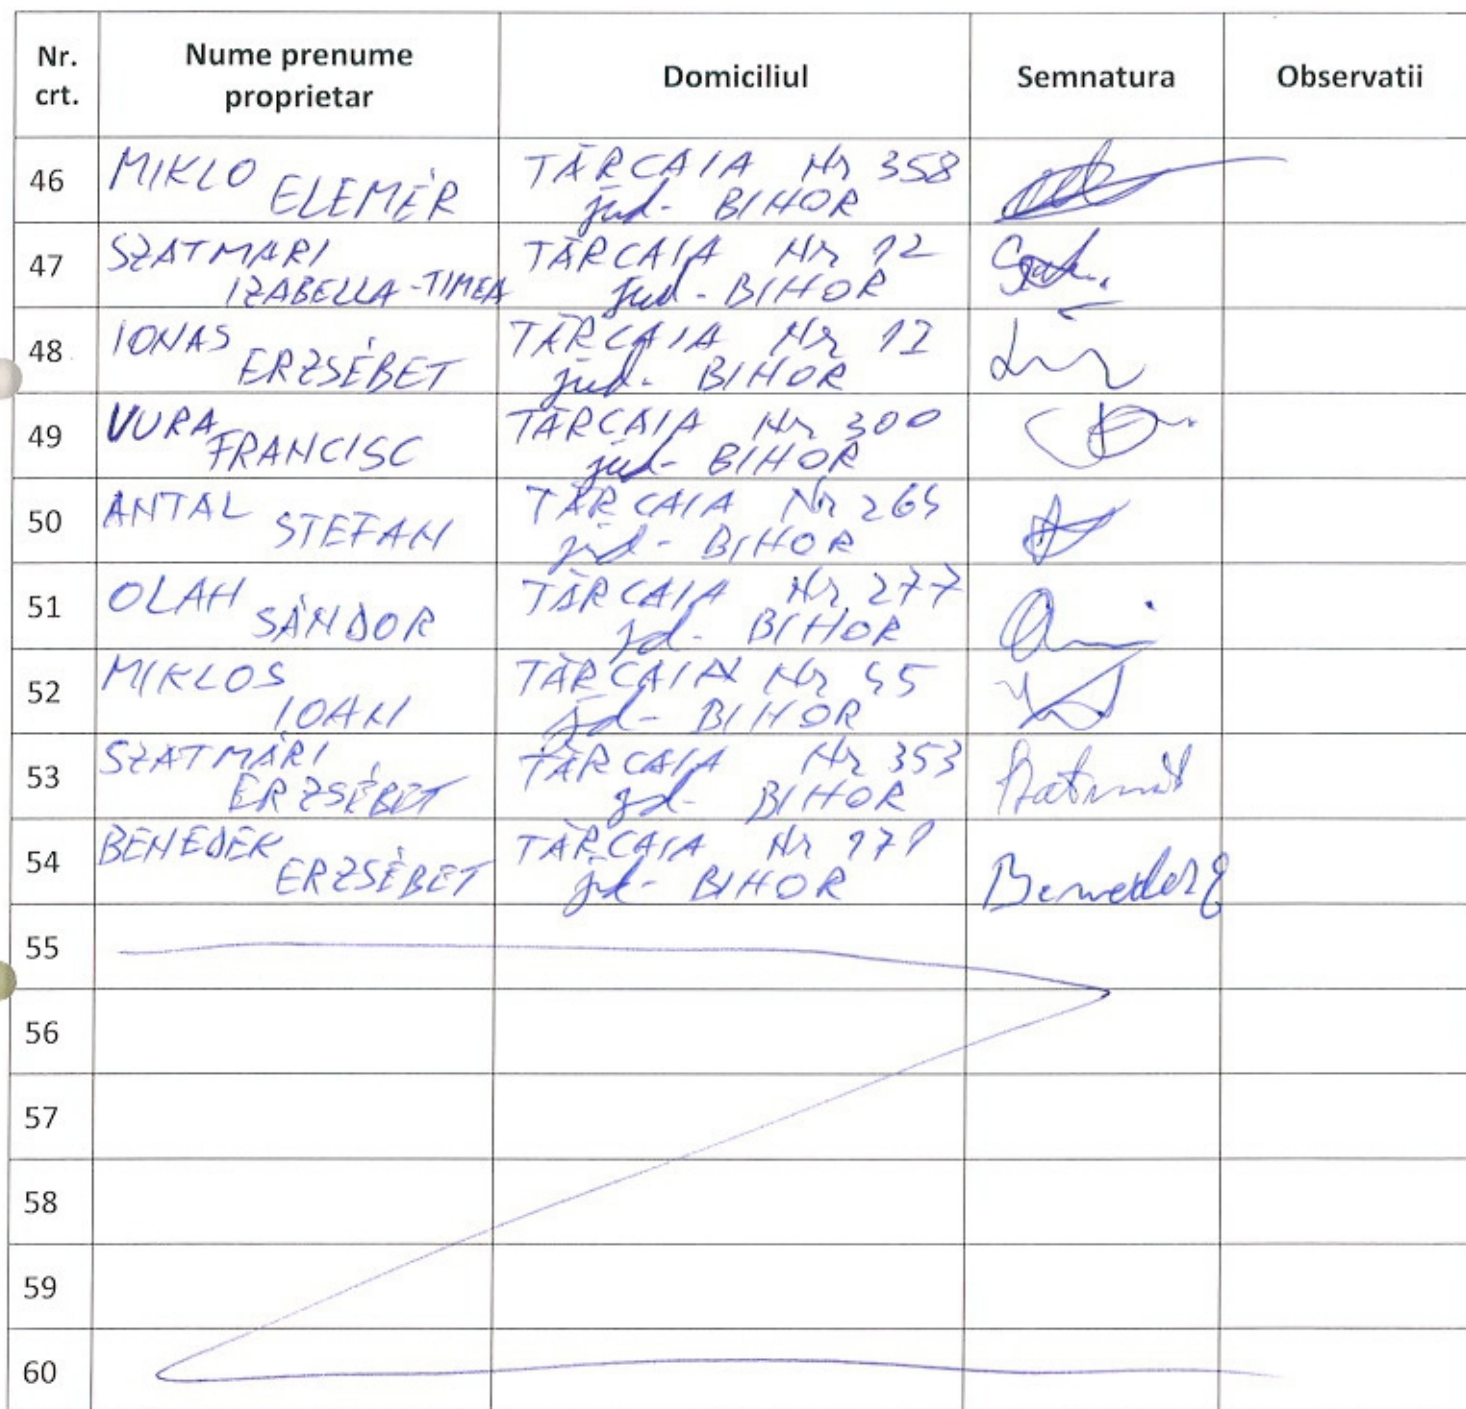 Nr. crt. Nume prenume proprietar Domiciliul Semnatura Observatii
46 MIKLO ELEMÉR TĂRCAIA Nr 358 jud- BIHOR
47 SZATMARI IZABELLA-TIMEA TĂRCAIA Nr 12 jud- BIHOR
48 IONAS ERZSÉBET TĂRCAIA Nr 12 jud- BIHOR
49 VURA FRANCISC TĂRCAIA Nr 300 jud- BIHOR
50 ANTAL STEFAN TĂRCAIA Nr jud- BIHOR
51 OLAH SÁNDOR TĂRCAIA Nr 277 jd- BIHOR
52 MIKLOS IOAN TĂRCAIA Nr jd- BIHOR
53 SZATMÁRI ERZSÉBET TĂRCAIA Nr 353 jd- BIHOR
54 BENEDEK ERZSÉBET TĂRCAIA Nr 171 jd- BIHOR
55
56
57
58
59
60